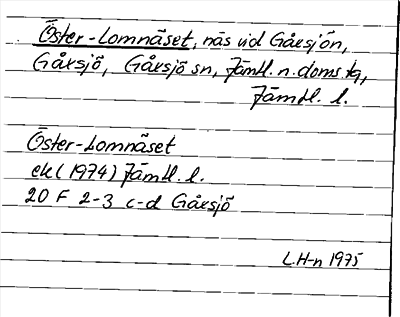 Öster-Lomnäset, näs vid Gåxsjön,
Gåxsjö, Gåxsjö sn, Jämtl. n. doms tg,
Jämtl. l.
Öster-Lomnäset
ek (1974) Jämtl. l.
20 F 2-3 c-d Gåxsjö
L.H-n 1975